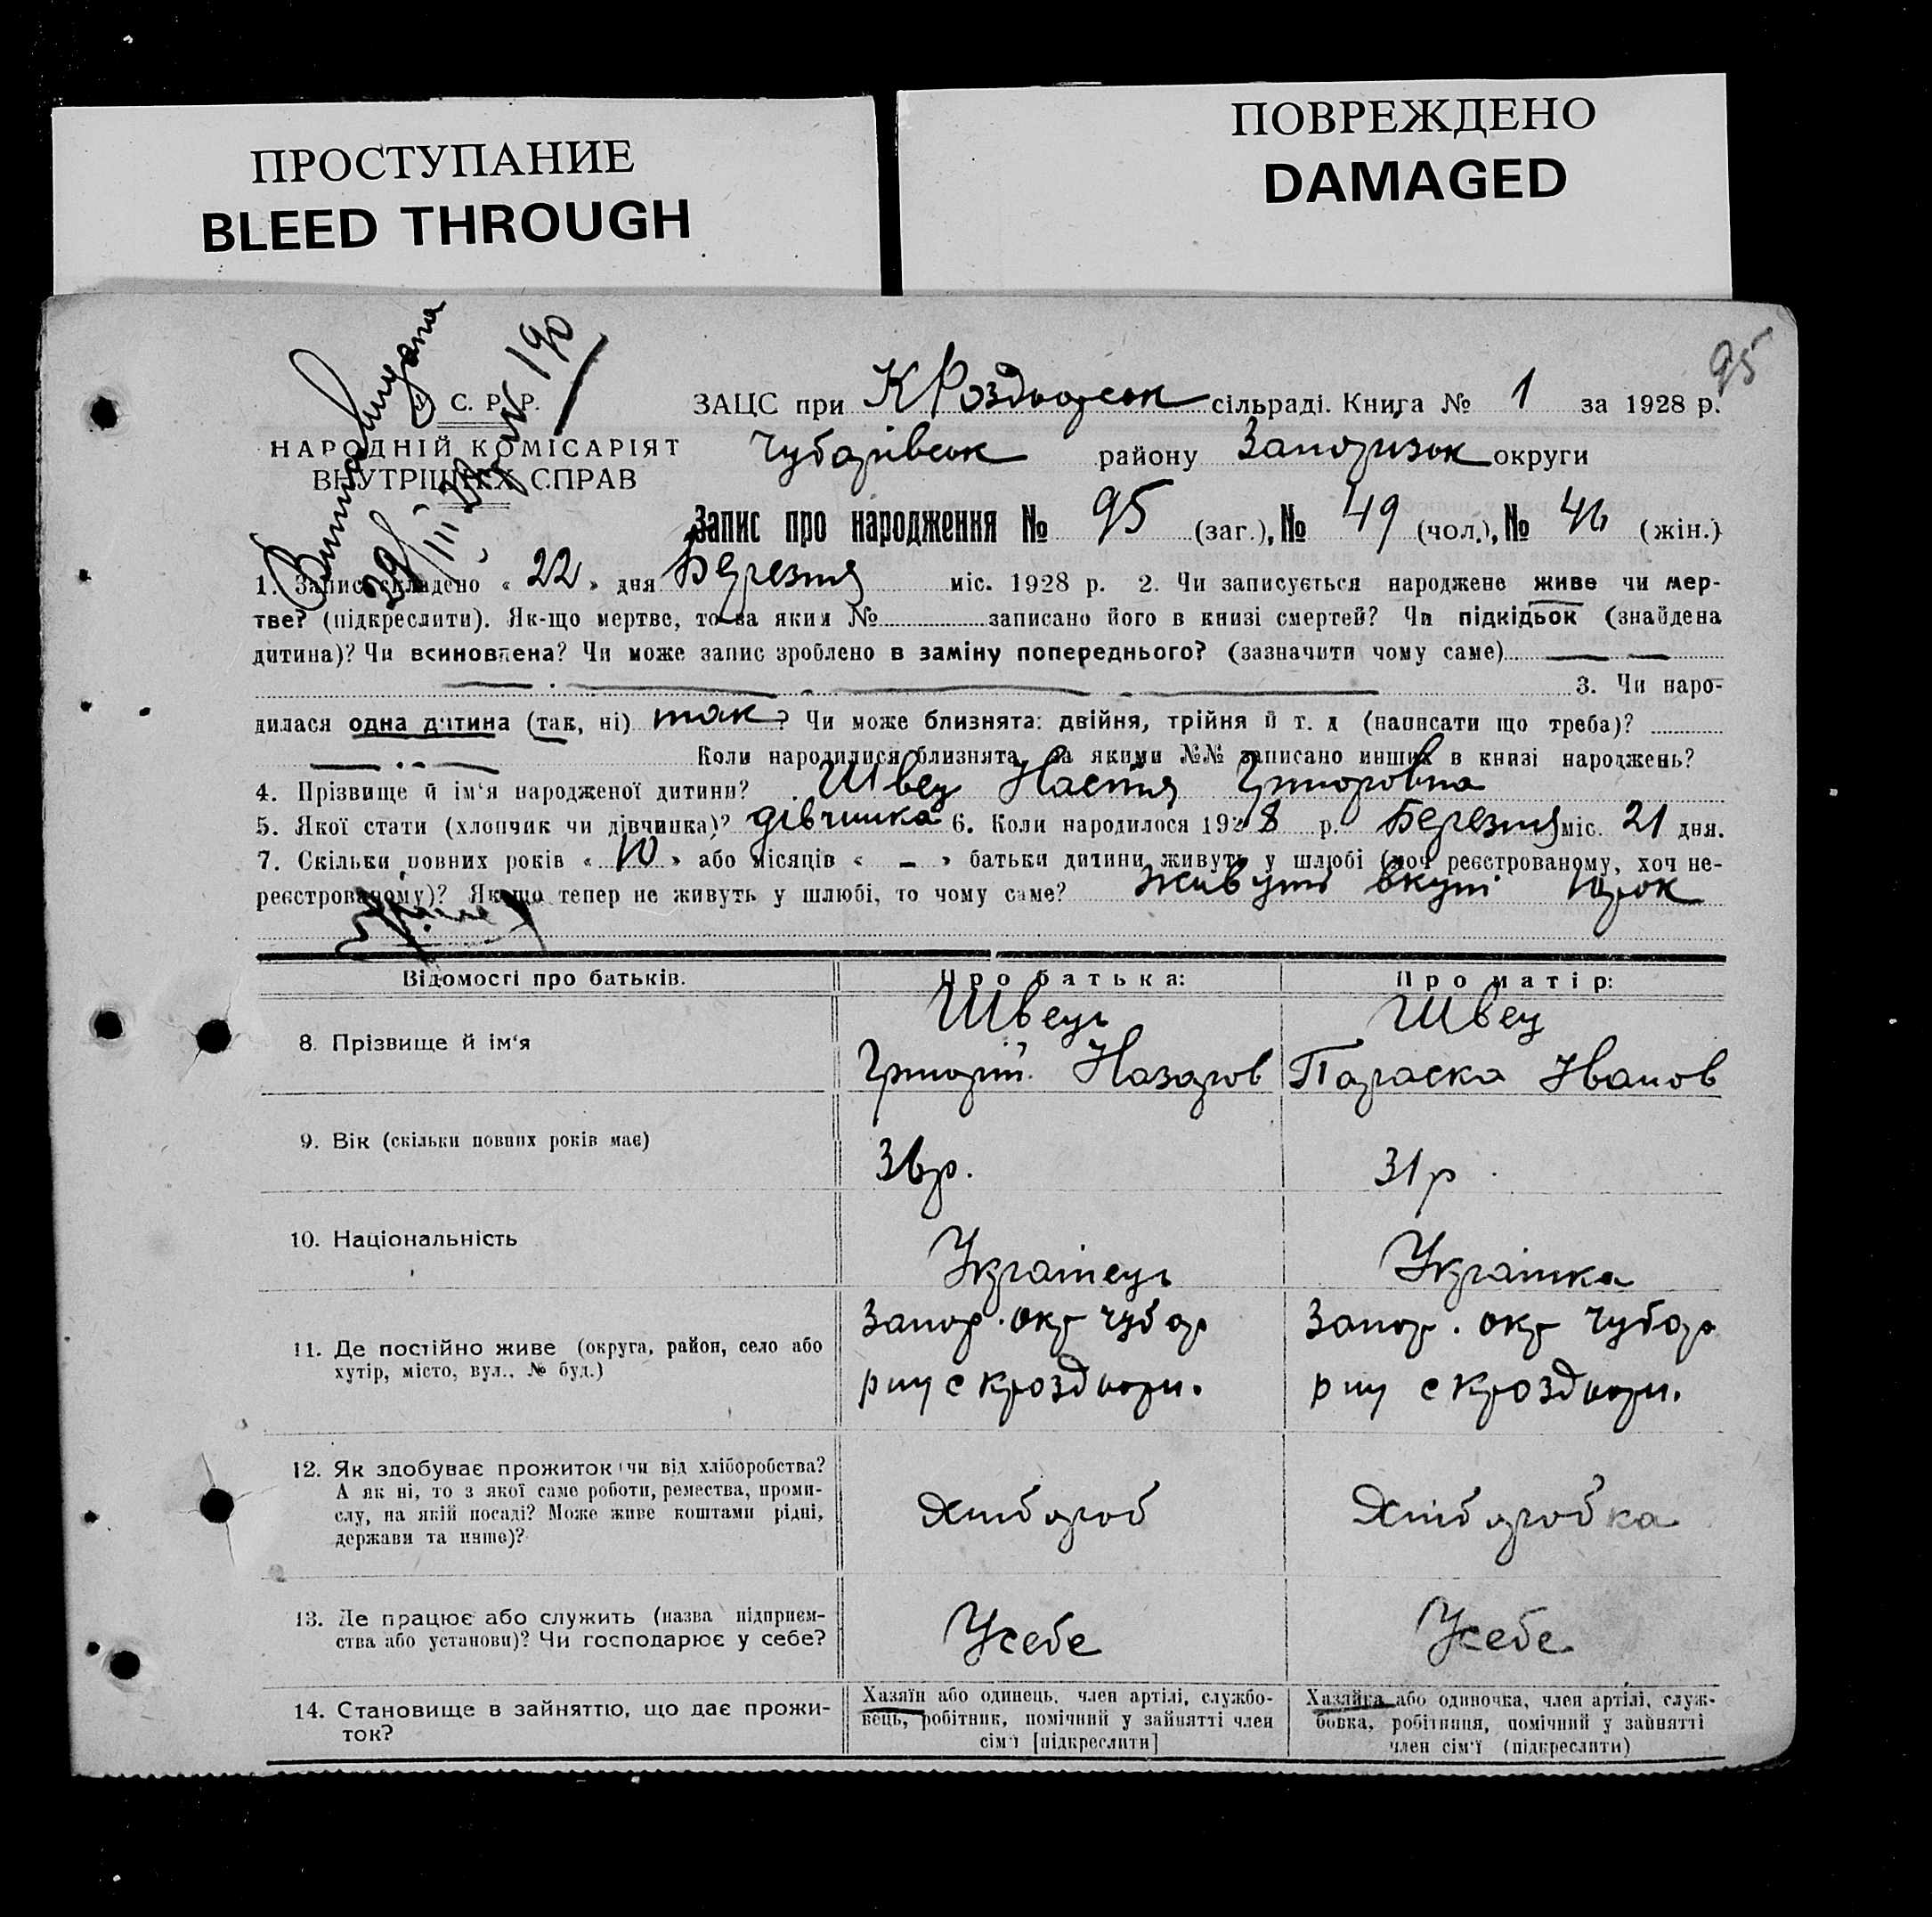 ПРОСТУПАНИЕ
BLEED THROUGH
ПОВРЕЖДЕНО
DAMAGED
95
С. Р. Р.
НАРОДНІЙ КОМІСАРІЯТ
ВНУТРІШНІХ СПРАВ
29/III
190
ЗАЦС при К Роздорськ сільраді. Книга № 1 за 1928 р.
Чубарівськ району Запорізьк округи
Запис про народження № 95 (заг.), № 49 (чол.), № 46 (жін.)
1. Запис складено « 22 » дня Березня міс. 1928 р. 2. Чи записується народжене живе чи мер-
тве? (підкреслити). Як-що мертве, то за яким № записано його в книзі смертей? Чи підкідьок (знайдена
дитина)? Чи всиновлена? Чи може запис зроблено в заміну попереднього? (зазначити чому саме) — —
— . — — — 3. Чи наро-
дилася одна дитина (так, ні) так? Чи може близнята: двійня, трійня й т. д (написати що треба)?
Коли народилися близнята, за якими №№ записано инших в книзі народжень?
4. Прізвище й ім'я народженої дитини? Швец Настя Григоровна
5. Якої стати (хлопчик чи дівчинка)? дівчинка 6. Коли народилося 1928 р. Березня міс. 21 дня.
7. Скільки повних років « 10 » або місяців « – » батьки дитини живуть у шлюбі (хоч реєстрованому, хоч не-
реєстрованому)? Як-що тепер не живуть у шлюбі, то чому саме? Живуть вкупі
Відомості про батьків. Про батька: Про матір:
8. Прізвище й ім'я Швець Швец
Григорій Назаров Параска Іванов
9. Вік (скільки повних років має) 36р. 31р.
10. Національність Українець Українка
11. Де постійно живе (округа, район, село або Запор. окр Чубар Запор. окр Чубар
хутір, місто, вул., № буд.) рну с Кроздори. рну с Кроздори.
12. Як здобуває прожиток чи від хліборобства?
А як ні, то з якої саме роботи, ремества, проми-
слу, на якій посаді? Може живе коштами рідні, Хлібороб Хліборобка
держави та инше)?
13. Де працює або служить (назва підприєм- Усебе Усебе
ства або установи)? Чи господарює у себе?
14. Становище в зайняттю, що дає прожи-
ток?
Хазяїн або одинець, член артілі, службо-
вець, робітник, помічний у зайнятті член
сім'ї [підкреслити]
Хазяйка або одиночка, член артілі, служ-
бовка, робітниця, помічний у зайнятті
член сім'ї (підкреслити)